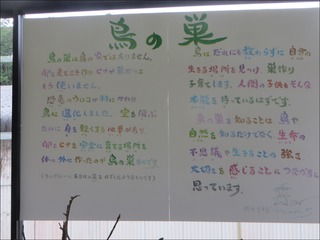 鳥の巣
鳥の巣は鳥の家ではありません。
卵を産み子を育て ヒナが巣立つと
もう使いません。
恐竜のウロコが羽にかわり
鳥に進化しました。空を飛ぶ
ために身を軽くする必要があり、
卵とヒナを安全に育てる場所を
体の外に作ったのが鳥の巣なのです。
鳥はだれにも教わらずに自然の
生きる場所を見つけ 巣作り
子育てします。人間の子供もそんな
本能を持っているはずです。
鳥の巣を知ることは 鳥や
自然を知るだけでなく 生命の
不思議や生きることの強さ
大切さを感じることにつながると
思っています。